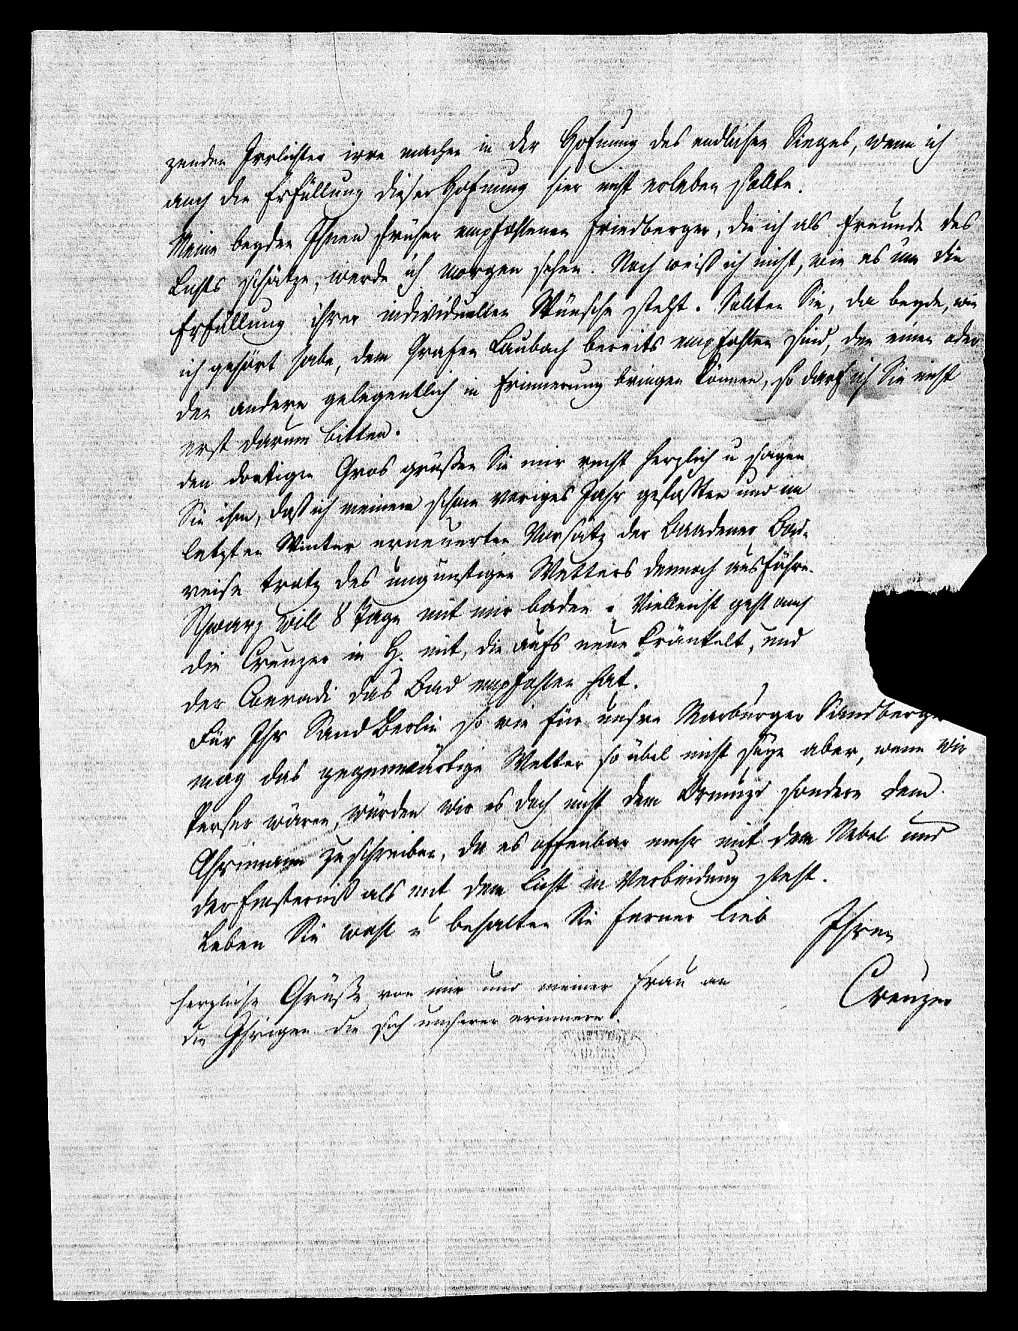 zenden Irrlichter irre machen in der Hofnung des endlichen Sieges, wenn ich
auch die Erfüllung dieser Hofnung hier nicht erleben sollte.
Meine beyden Ihnen früher empfohlenen Friedberger, die ich als Freunde des
Lichts schätze, werde ich morgen sehen. Noch weiß ich nicht, wie es um die
Erfüllung ihrer individuellen Wünsche steht. Sollten Sie, da beyde, wie
ich gehört habe, dem Grafen Laubach bereits empfohlen sind, den einen oder
den andern gelegentlich in Erinnerung bringen können, so darf ich Sie nicht
erst darum bitten.
den dortigen Gros grüßen Sie mir recht herzlich u sagen
Sie ihm, daß ich meinen schon voriges Jahr gefaßten und im
letzten Winter erneuerten Vorsatz der Baadener Bad-
reise trotz des ungünstigen Wetters dennoch ausführe.
Schwarz will 8 Tage mit mir baden. Vielleicht geht auch
die Creuzer in H. mit, die aufs neue kränkelt, und
der Conradi das Bad empfohlen hat.
Für Ihr Sand Berlin so wie für unsre Marburger Sandberge
mag das gegenwärtige Wetter so übel nicht seyn aber, wenn wir
Perser wären, würden wir es doch nicht dem Ormuzd sondern dem
Ahriman zuschreiben, da es offenbar mehr mit dem Nebel und
der Finsterniß als mit dem Licht in Verbindung steht.
Leben Sie wohl u behalten Sie ferner lieb
Ihren
Creuzer
herzliche Grüße von mir und meiner Frau an
die Ihrigen die sich unserer erinnern.